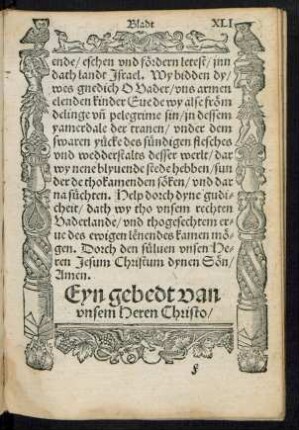 Bladt XLI
ende/ eschen vnd fördern letest/ jnn
dath landt Israel. Wy bidden dy/
wes gnedich O Vader/ vns armen
elenden kinder Euede wy alse fröm
delinge vñ pelegrime sin/ jn dessem
yamerdale der tranen/ vnder dem
swaren yücke des sündigen flesches
vnd wedderstalts desser werlt/ dar
wy nene blyuende stede hebben/ sun
der de thokamenden söken/ vnd dar
na süchten. Help dorch dyne gudi-
cheit/ dath wy tho vnsem rechten
Vaderlande/ vnd thogesechtem er-
ue des ewigen leuendes kamen mö-
gen. Dorch den süluen vnsen He-
ren Jesum Christum dynen Sön/
Amen.
Eyn gebedt van
vnsem Heren Christo/
§